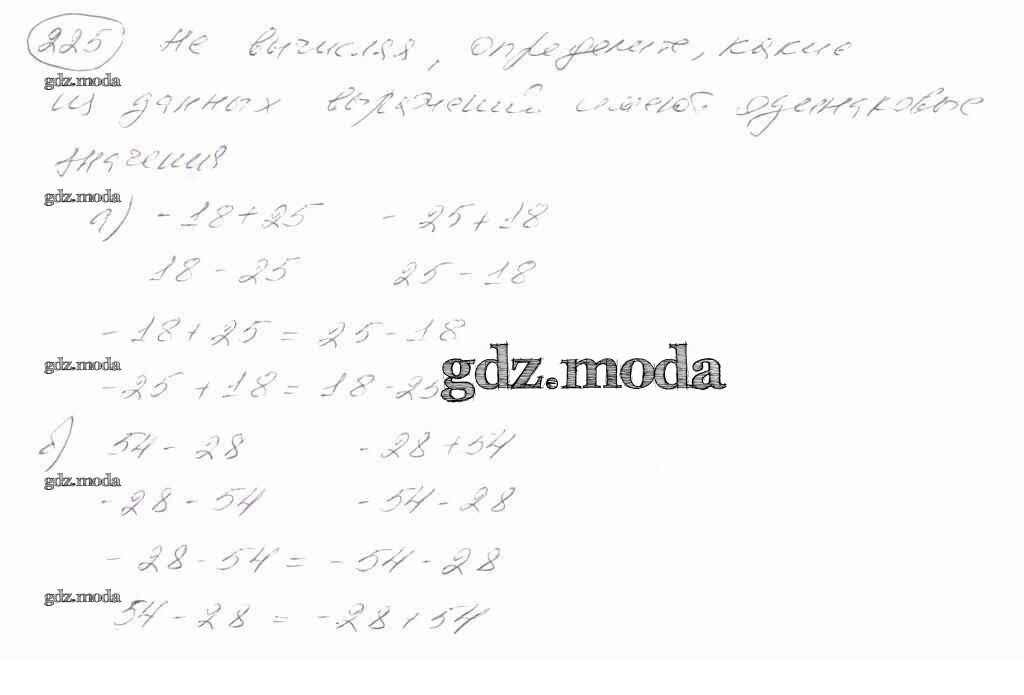 225 Не вычисляя, определите, какие
gdz.moda
из данных выражений имеют одинаковые
значения
gdz.moda
а) -18+25 - 25+18
18-25 25-18
-18+25 = 25-18
gdz.moda
gdz.moda
-25+18 = 18-25
б) 54-28 -28+54
gdz.moda
-28-54 -54-28
-28-54 = -54-28
gdz.moda
54-28 = -28+54